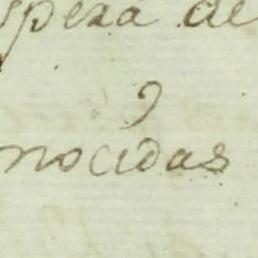 spera de
nocidas